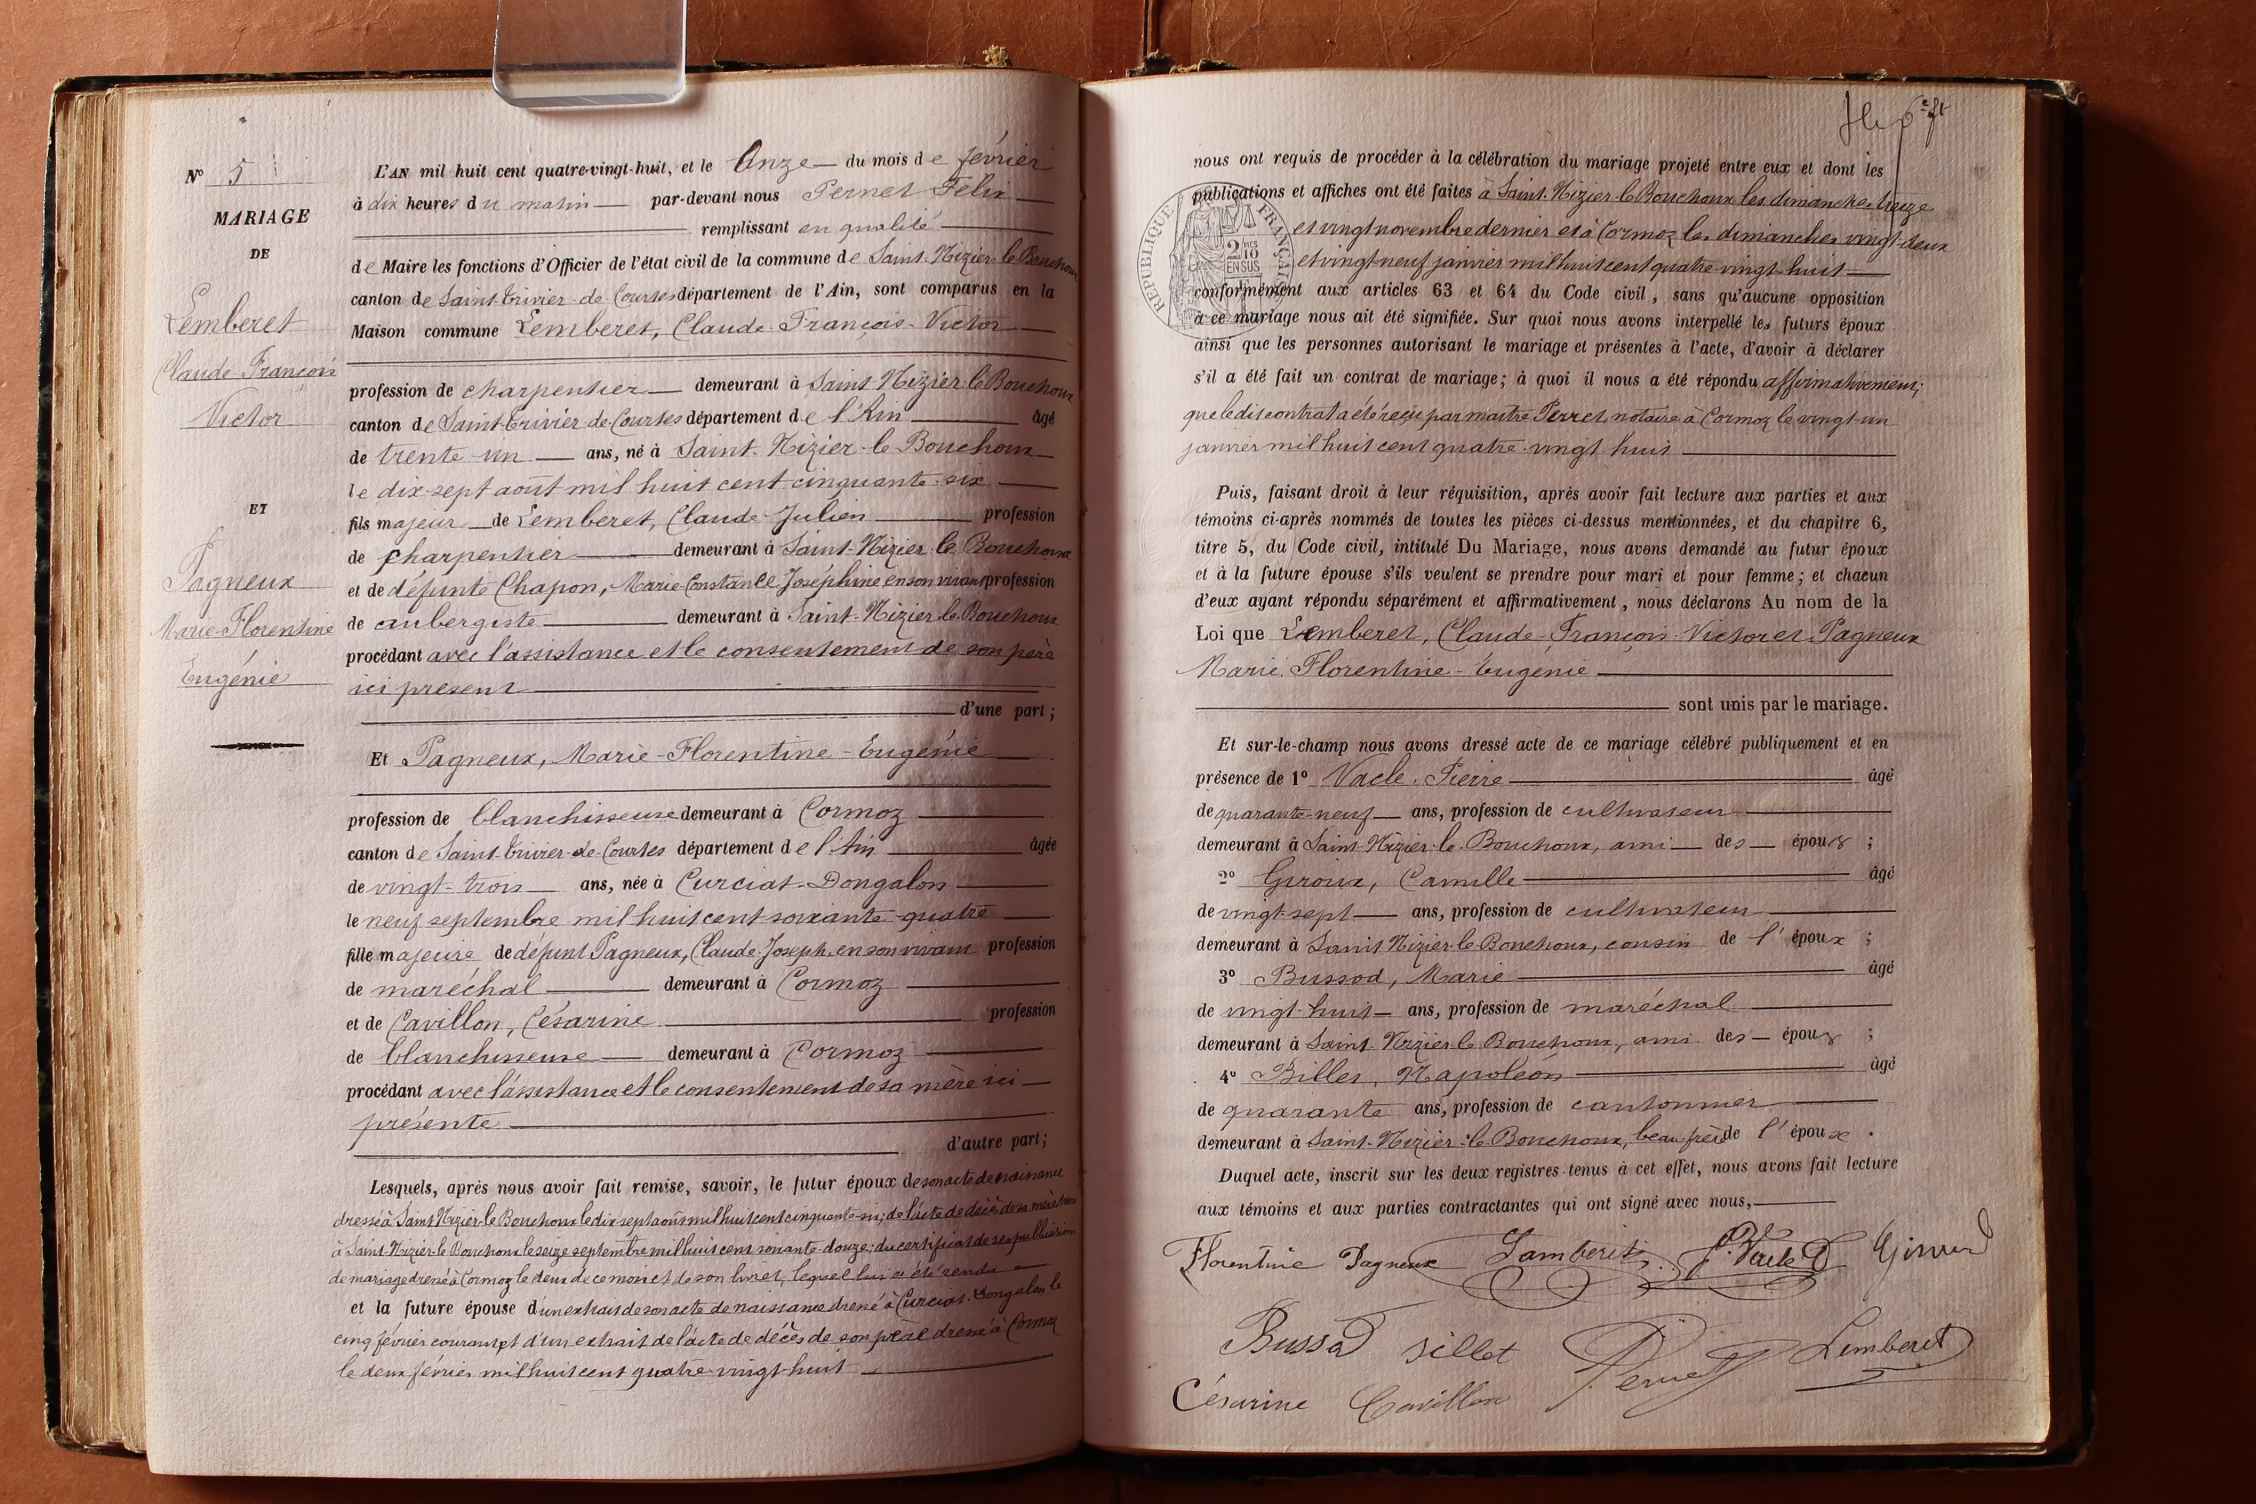 N° 5
MARIAGE
DE
Lemberet
Claude François
Victor
ET
Pagneux
Marie-Florentine
Eugénie
L'AN mil huit cent quatre-vingt-huit, et le Onze du mois de février
à dix heures du matin par-devant nous Pernet Félix
remplissant en qualité
de Maire les fonctions d'Officier de l'état civil de la commune de Saint-Nizier-le-Bouchoux
canton de Saint-Trivier-de-Courtes département de l'Ain, sont comparus en la
Maison commune Lemberet, Claude-François-Victor
profession de charpentier demeurant à Saint-Nizier-le-Bouchoux
canton de Saint-Trivier-de-Courtes département de l'Ain âgé
de trente-un ans, né à Saint-Nizier-le-Bouchoux
le dix-sept août mil huit cent cinquante-six
fils majeur de Lemberet, Claude-Julien profession
de charpentier demeurant à Saint-Nizier-le-Bouchoux
et de défunte Chapon, Marie-Constance Joséphine en son vivant profession
de aubergiste demeurant à Saint-Nizier-le-Bouchoux
procédant avec l'assistance et le consentement de son père
ici présent
d'une part ;
Et Pagneux, Marie-Florentine-Eugénie
profession de blanchisseuse demeurant à Cormoz
canton de Saint-Trivier-de-Courtes département de l'Ain âgée
de vingt-trois ans, née à Curciat-Dongalon
le neuf septembre mil huit cent soixante-quatre
fille majeure de défunt Pagneux, Claude-Joseph, en son vivant profession
de maréchal demeurant à Cormoz
et de Cavillon, Césarine profession
de blanchisseuse demeurant à Cormoz
procédant avec l'assistance et le consentement de sa mère ici
présente
d'autre part ;
Lesquels, après nous avoir fait remise, savoir, le futur époux de son acte de naissance
dressé à Saint-Nizier-le-Bouchoux le dix-sept août mil huit cent cinquante-six ; de l'acte de décès de sa mère
à Saint-Nizier-le-Bouchoux le seize septembre mil huit cent soixante-douze ; du certificat de ses publications
de mariage dressé à Cormoz le deux de ce mois et de son livret, lequel lui a été rendu
et la future épouse d'un extrait de son acte de naissance dressé à Curciat-Dongalon le
cinq février courant et d'un extrait de l'acte de décès de son père dressé à Cormoz
le deux février mil huit cent quatre-vingt-huit
nous ont requis de procéder à la célébration du mariage projeté entre eux et dont les
publications et affiches ont été faites à Saint-Nizier-le-Bouchoux les dimanches treize
et vingt novembre dernier et à Cormoz les dimanches vingt-deux
et vingt-neuf janvier mil huit cent quatre-vingt-huit
conformément aux articles 63 et 64 du Code civil, sans qu'aucune opposition
à ce mariage nous ait été signifiée. Sur quoi nous avons interpellé les futurs époux
ainsi que les personnes autorisant le mariage et présentes à l'acte, d'avoir à déclarer
s'il a été fait un contrat de mariage ; à quoi il nous a été répondu affirmativement ;
que le dit contrat a été reçu par maître Perret notaire à Cormoz le vingt-un
janvier mil huit cent quatre-vingt-huit
RÉPUBLIQUE FRANÇAISE
2 /10
EN SUS
Puis, faisant droit à leur réquisition, après avoir fait lecture aux parties et aux
témoins ci-après nommés de toutes les pièces ci-dessus mentionnées, et du chapitre 6,
titre 5, du Code civil, intitulé Du Mariage, nous avons demandé au futur époux
et à la future épouse s'ils veulent se prendre pour mari et pour femme ; et chacun
d'eux ayant répondu séparément et affirmativement, nous déclarons Au nom de la
Loi que Lemberet, Claude-François-Victor et Pagneux
Marie-Florentine-Eugénie
sont unis par le mariage.
Et sur-le-champ nous avons dressé acte de ce mariage célébré publiquement et en
présence de 1° Vacle, Pierre âgé
de quarante-neuf ans, profession de cultivateur
demeurant à Saint-Nizier-le-Bouchoux, ami des époux ;
2° Giroux, Camille âgé
de vingt-sept ans, profession de cultivateur
demeurant à Saint-Nizier-le-Bouchoux, cousin de l'époux ;
3° Bussod, Marie âgé
de vingt-huit ans, profession de maréchal
demeurant à Saint-Nizier-le-Bouchoux, ami des époux ;
4° Billet, Napoléon âgé
de quarante ans, profession de cantonnier
demeurant à Saint-Nizier-le-Bouchoux, beau frère de l'époux.
Duquel acte, inscrit sur les deux registres tenus à cet effet, nous avons fait lecture
aux témoins et aux parties contractantes qui ont signé avec nous,
Florentine Pagneux Lamberet P. Vacle
Bussod Billet Pernet Lemberet
Césarine Cavillon